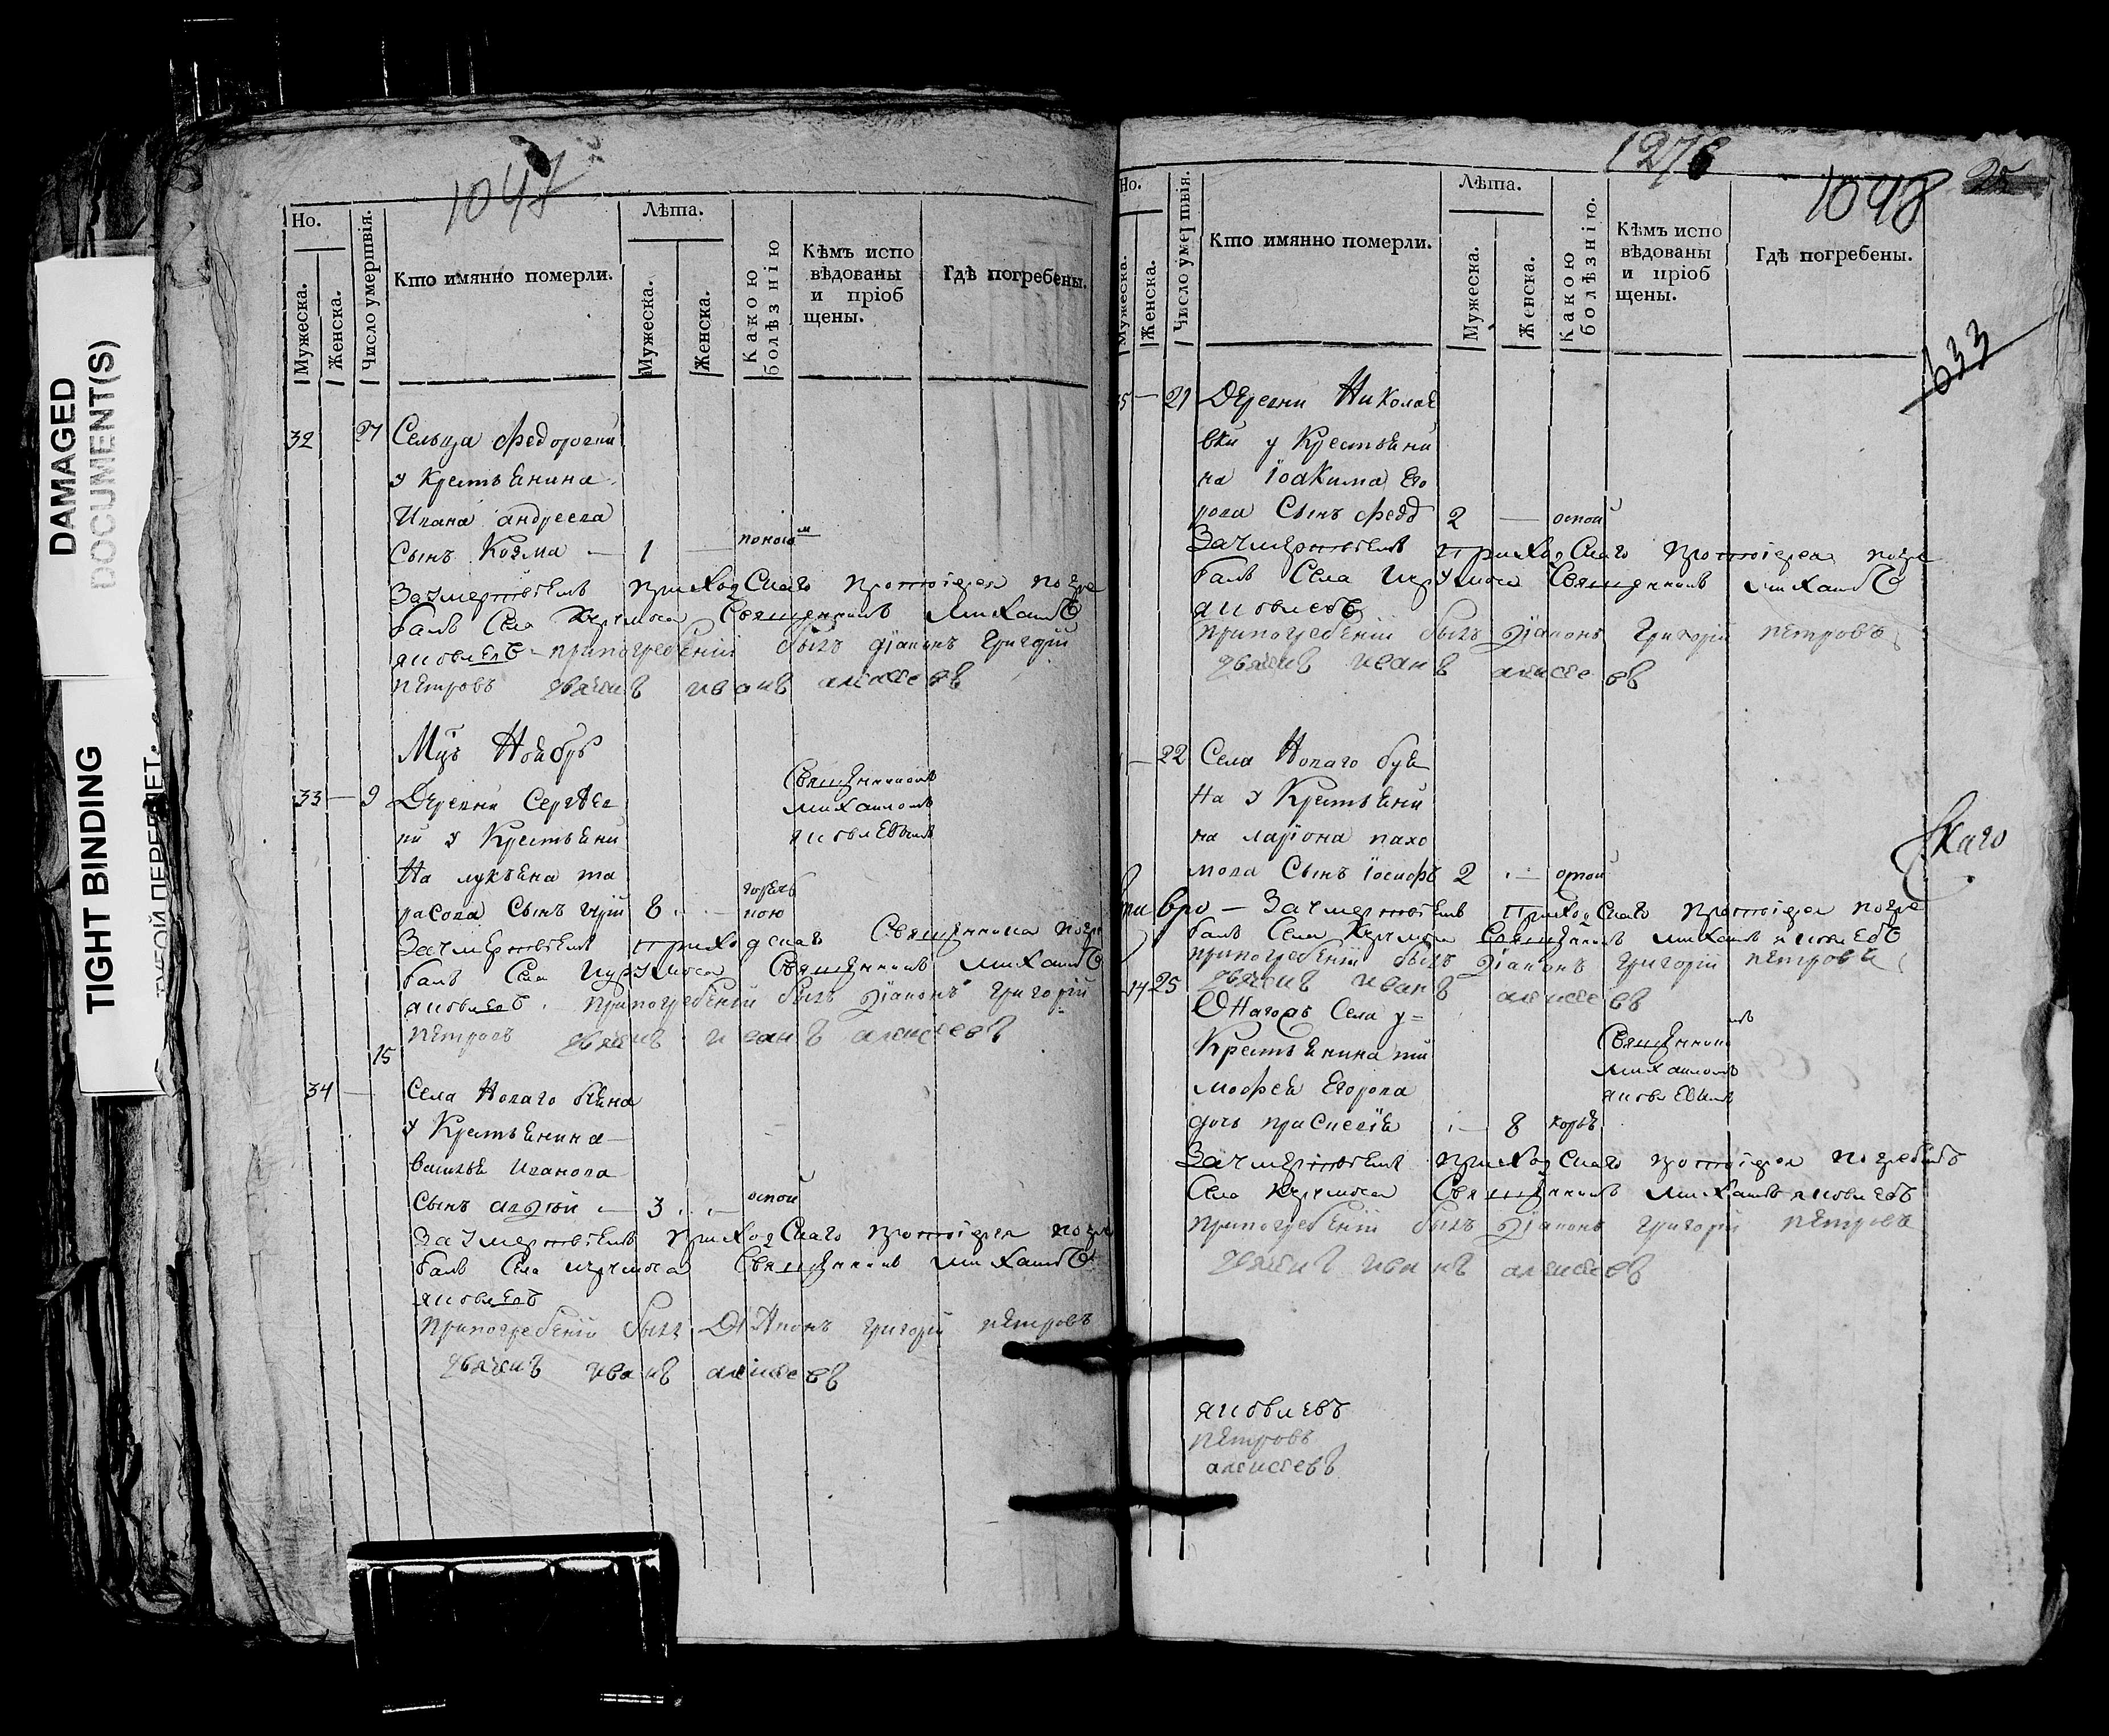 DAMAGED
DOCUMENT(S)
TIGHT BINDING
ТУГОЙ ПЕРЕПЛЕТ
1047
Но.
Мужеска.
Женска.
Число умертвія.
Кто имянно померли.
Лѣта.
Мужеска.
Женска.
Какою болѣзнію
Кѣмъ испо
вѣдованы
и пріоб
щены.
Гдѣ погребены.
32 27 Сельца Федоровки
у Крестьянина
Ивана андреева
Сынъ Козма — 1 —
За умертвіемъ приходскаго протоіерея погре
балъ Села Священникъ Михаилъ
яковлевъ при погребеніи былъ діаконъ григорій
петровъ дьячекъ иванъ алексеевъ
Мцъ Ноябрь
33 — 9 Деревни Сергѣев
ки у Крестьяни
На лукьяна та
расова Сынъ 8 — горяч
кою
Священникомъ
михаиломъ
яковлевымъ
За умертвіемъ приходскаго Священника погре
балъ Села Священникъ Михаилъ
яковлевъ. при погребеніи былъ діаконъ григорій
петровъ дьячекъ иванъ алексеевъ
15
34 — Села Новаго
у Крестьянина
василья Иванова
Сынъ — 3 — оспой
За умертвіемъ приходскаго протоіерея погре
балъ Села Священникъ Михаилъ
яковлевъ
при погребеніи былъ Діаконъ григорій петровъ
дьячекъ иванъ алексеевъ
1276
1048
633
Но.
Мужеска.
Женска.
Число умертвія.
Кто имянно померли.
Лѣта.
Мужеска.
Женска.
Какою болѣзнію.
Кѣмъ испо
вѣдованы
и пріоб
щены.
Гдѣ погребены.
35 — 21 Деревни Николае
вки у Крестьяни
на Іоакима Его
рова Сынъ Федо 2 — оспой
За умертвіемъ приходскаго протоіерея погре
балъ Села Священникъ михаилъ
яковлевъ
при погребеніи былъ діаконъ григорій петровъ
дьячекъ иванъ алексеевъ
— 22 Села Новаго буя
На у Крестьяни
на ларіона пахо
мова Сынъ Іосифъ 2 — оспой
скаго
За умертвіемъ приходскаго протоіерея погре
балъ Села Священникъ михаилъ яковлевъ
при погребеніи былъ діаконъ григорій петровъ
дьячекъ иванъ алексеевъ
14 25 Онагожъ Села у
Крестьянина ти
мофея Егорова
дочь — 8 корью
Священником
михаиломъ
яковлевымъ
За умертвіемъ приходскаго протоіерея погребалъ
Села Священникъ михаилъ яковлевъ
при погребеніи былъ діаконъ григорій петровъ
дьячекъ иванъ алексеевъ
яковлевъ
петровъ
алексеевъ